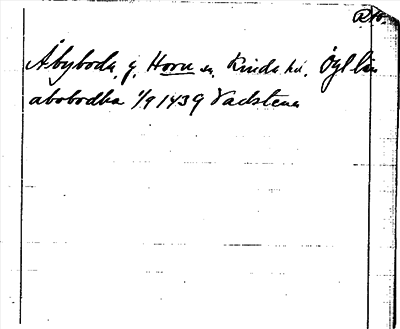 RA0.
Åbyboda, g, Horn sn, Kinda hd, Ögl län
abobodha 1/9 1439 Vadstena